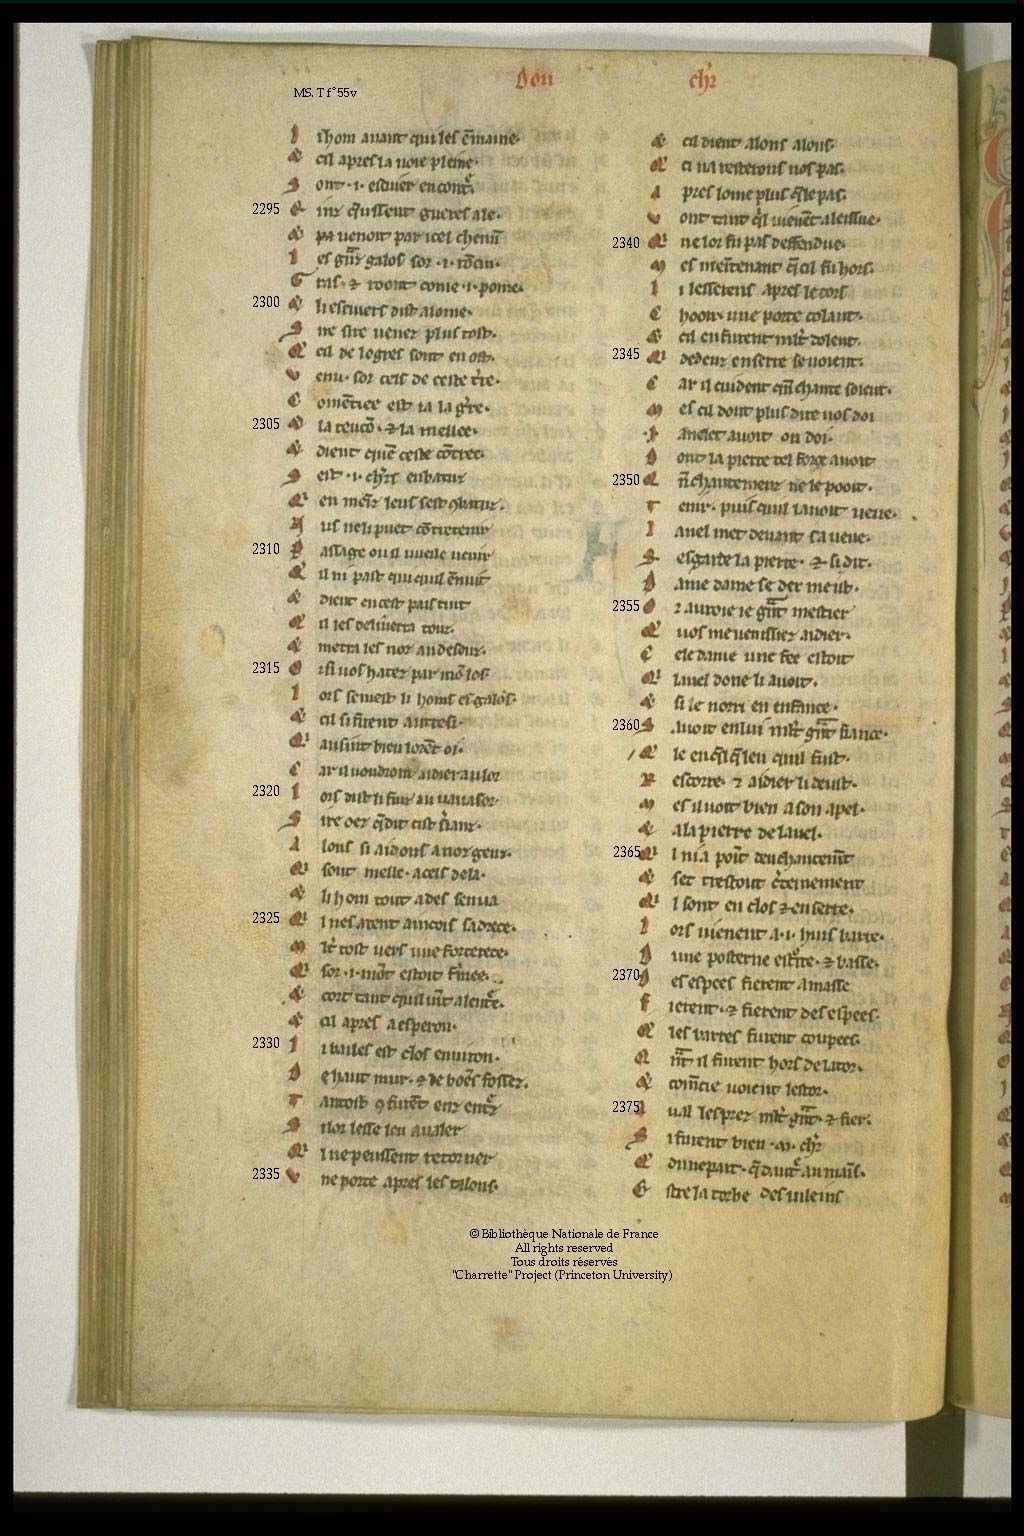 MS. T f°55v
Don
chr
L i hom auant qui les c̄maine·
E t cil apres la uoie pleine·
S ont ·i· escuier encontre
2295
E inz q̄ussent gueres ale·
Q pa uenoit par icel chemī
L es gr̄nz galos sor ·i· rōcin·
G ras· ⁊ roont come ·i· pome·
2300
E t li escuiers dist a lome·
S ire sire uenez plus tost·
Q cil de logres sont en ost·
V enu· sor ceis de ceste t̄re·
C omēciee est ia la gr̄e·
2305
E t la tencō· ⁊ la mellee·
E t dient quē ceste cōtree·
S est ·i· chr̄s enbatuz
Q en meīz leus sest ꝯbatuz·
N us ne li puet cōtretenir
2310
P assage ou il uueile uenir
Q il ni past qui quil ēnuit
E t dient en cest pais tuit
Q il les deliuerra touz·
E t metra les noz au desouz·
2315
O r si uos hatez par mō los
L ors se mest li homs es galos·
E t cil si firent autresi·
Q ausint bien lorēt oi·
C ar il uoudront aidier au lor
2320
L ors dist li fiuz au uauasor
S ire oez q̄ dit cist s̄ianz·
A lons si aidons a noz genz·
Q sont melle· a ceis dela·
E t li hom tout ades sen ua
2325
Q l nes atent aincois sadrece·
M lt̄ tost uers une forterece·
Q sor ·i· mōt estoit f̄mee·
E t cort tant quil uīt a lentr̄e·
E t cil apres a esperon·
2330
L i bailes est clos enuiron·
D e haut mur· ⁊ de boēs fossez·
T antost ꝯ furēt enz entr̄
S i lor lesse len aualer
Q l ne peussent retorner
2335
V ne porte apres les talons·
E t cil dient alons alons
Q ci na resterons nos pas·
A pres lome plus q̄ le pas·
V ont tant q̄l uienēt a leissue·
2340
Q ne lor fu pas deffendue·
M es meītenant q̄ cil fu hors·
L i lesserent apres le cors
C hooir une porte colant·
E t cil en furent ml̄t dolent·
2345
Q dedenz en serre se uoient·
C ar il cuident qm̄ chante soient·
M es cil dont plus dire uos doi
·I· anelet auoit ou doi·
D ont la pierre tel force auoit
2350
Q n̄ chantemenz ne le pooit·
T enir· puis quil lauoit ueue·
L anel met deuant sa ueue·
R esgarde la pierre· ⁊ si dit·
D ame dame se dex me ust·
2355
O r auroie ie gr̄nt mestier
Q uos me uenissiez aidier·
C ele dame une fee estoit
Q lanel done li auoit·
E t si le norri en enfance·
2360
S auoit en lui ml̄t gr̄nt fiance·
Q le en q̄l q̄ leu quil fust·
R escorre· ⁊ aidier li deust·
M es il uoit bien a son apel·
E t a la pierre de lanel·
2365
Q l ni a poīt denchantemīt
E t set trestout c̄teinement
Q l sont en clos ⁊ en serre·
L ors uienent a ·i· huis barre·
D une posterne estrōite· ⁊ basse·
2370
L es espees fierent a masse
F ierent· ⁊ fierent des espees·
Q les barres furent coupees·
Q nt̄ il furent hors de la tor·
E t com̄cie uoient lestor·
2375
A ual les prez ml̄t gr̄nt· ⁊ fier·
S i furent bien ·m· chr̄
Q dune part· q̄ dautr̄e au mais·
E stre la torbe des uileins
© Bibliothèque Nationale de France
All rights reserved
Tous droits réservés
"Charrette" Project (Princeton University)